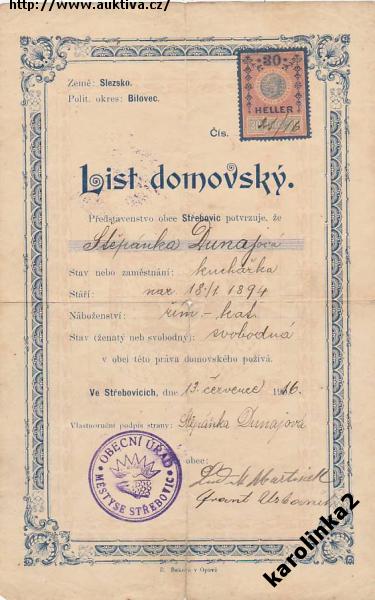 http://www.auktiva.cz/
Země: Slezsko.
Polit. okres: Bílovec.
30
HELLER
Čís.
List domovský.
Představenstvo obce Střebovic potvrzuje, že
Štěpánka Dunajová
Stav nebo zaměstnání: kuchařka
Stáří: nar. 18/1 1894
Náboženství: řím-kat.
Stav (ženatý neb svobodný): svobodná
v obci této práva domovského požívá.
Ve Střebovicích, dne 13. červenec 1916.
Vlastnoruční podpis strany: Štěpánka Dunajová
obec:
OBECNÍ ÚŘAD
MĚSTYSE STŘEBOVIC
v Opavě
karolinka2